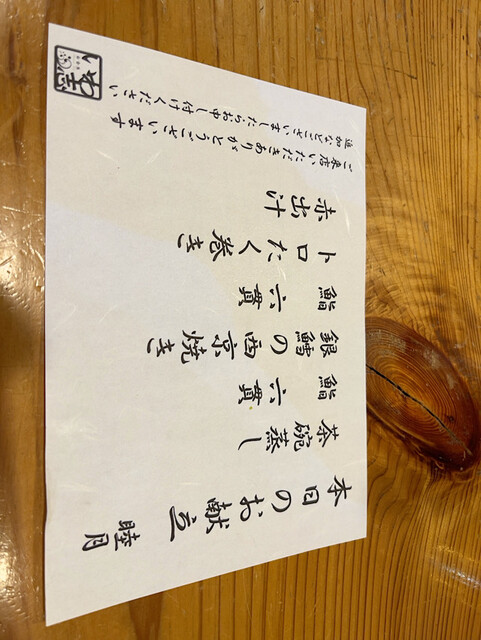 本日のお献立 睦月
茶碗蒸し
鮨 六貫
銀鱈の西京焼き
鮨 六貫
トロたく巻き
赤出汁
ご来店いただきありがとうございます
追加などございましたらお申し付けください